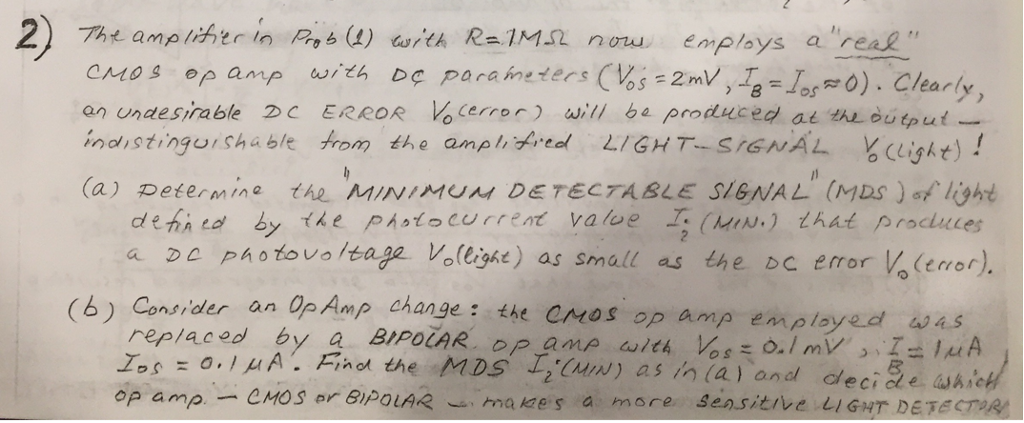 2) The amplifier in Prob (1) with R=1MΩ now employs a "real"
CMOS op amp with DC parameters (Vos = 2mV, IB = Ios ≈ 0). Clearly,
an undesirable DC ERROR Vo(error) will be produced at the output –
indistinguishable from the amplified LIGHT-SIGNAL Vo(light)!
(a) Determine the "MINIMUM DETECTABLE SIGNAL" (MDS) of light
defined by the photocurrent value Ii (MIN.) that produces
a DC photovoltage Vo(light) as small as the DC error Vo(error).
(b) Consider an Op Amp change: the CMOS op amp employed was
replaced by a BIPOLAR op amp with Vos = 0.1 mV, IB = 1μA,
Ios = 0.1 μA. Find the MDS Ii (MIN) as in (a) and decide which
op amp. – CMOS or BIPOLAR – makes a more sensitive LIGHT DETECTOR